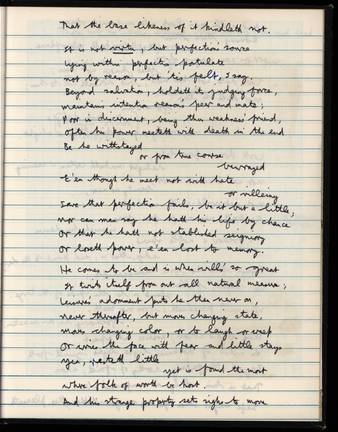 That the base likeness of it kindleth not.
It is not virtu, but perfection's source
Lying within perfection postulate
Not by reason, but 'tis felt, I say.
Beyond salvation, holdeth its judging force,
Maintains intention reason's peer and mate;
Poor in discernment, being thus weakness' friend,
Often his power meeteth with death in the end
Be he withstayed
or from true course
bewrayed
E'en though he meet not with hate
or villeiny
Save that perfection fails, be it but a little;
Nor can man say he hath his life by chance
Or that he hath not stablished seigniory
Or loseth power, e'en lost to memory.
He comes to be and is when will's so great
It twists itself from out all natural measure;
Leisure's adornment puts he then never on,
Never thereafter, but moves changing state,
Moves changing color, or to laugh or weep
Or wries the face with fear and little stays
Yea, resteth little
yet is found the most
Where folk of worth be host.
And his strange property sets sighs to move